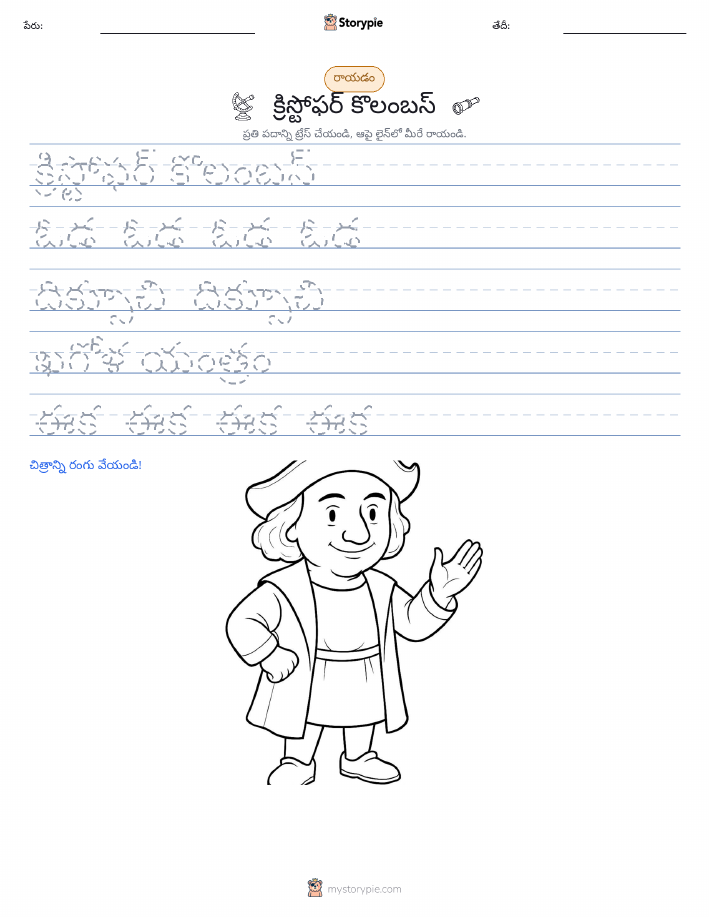 పేరు:
Storypie
తేదీ:
రాయడం
క్రిస్టోఫర్ కొలంబస్
ప్రతి పదాన్ని ట్రేస్ చేయండి, ఆపై లైన్‌లో మీరే రాయండి.
క్రిస్టోఫర్ కొలంబస్
ఓడ ఓడ ఓడ ఓడ
దిక్సూచి దిక్సూచి
ఖగోళ యంత్రం
ఈక ఈక ఈక ఈక
చిత్రాన్ని రంగు వేయండి!
mystorypie.com